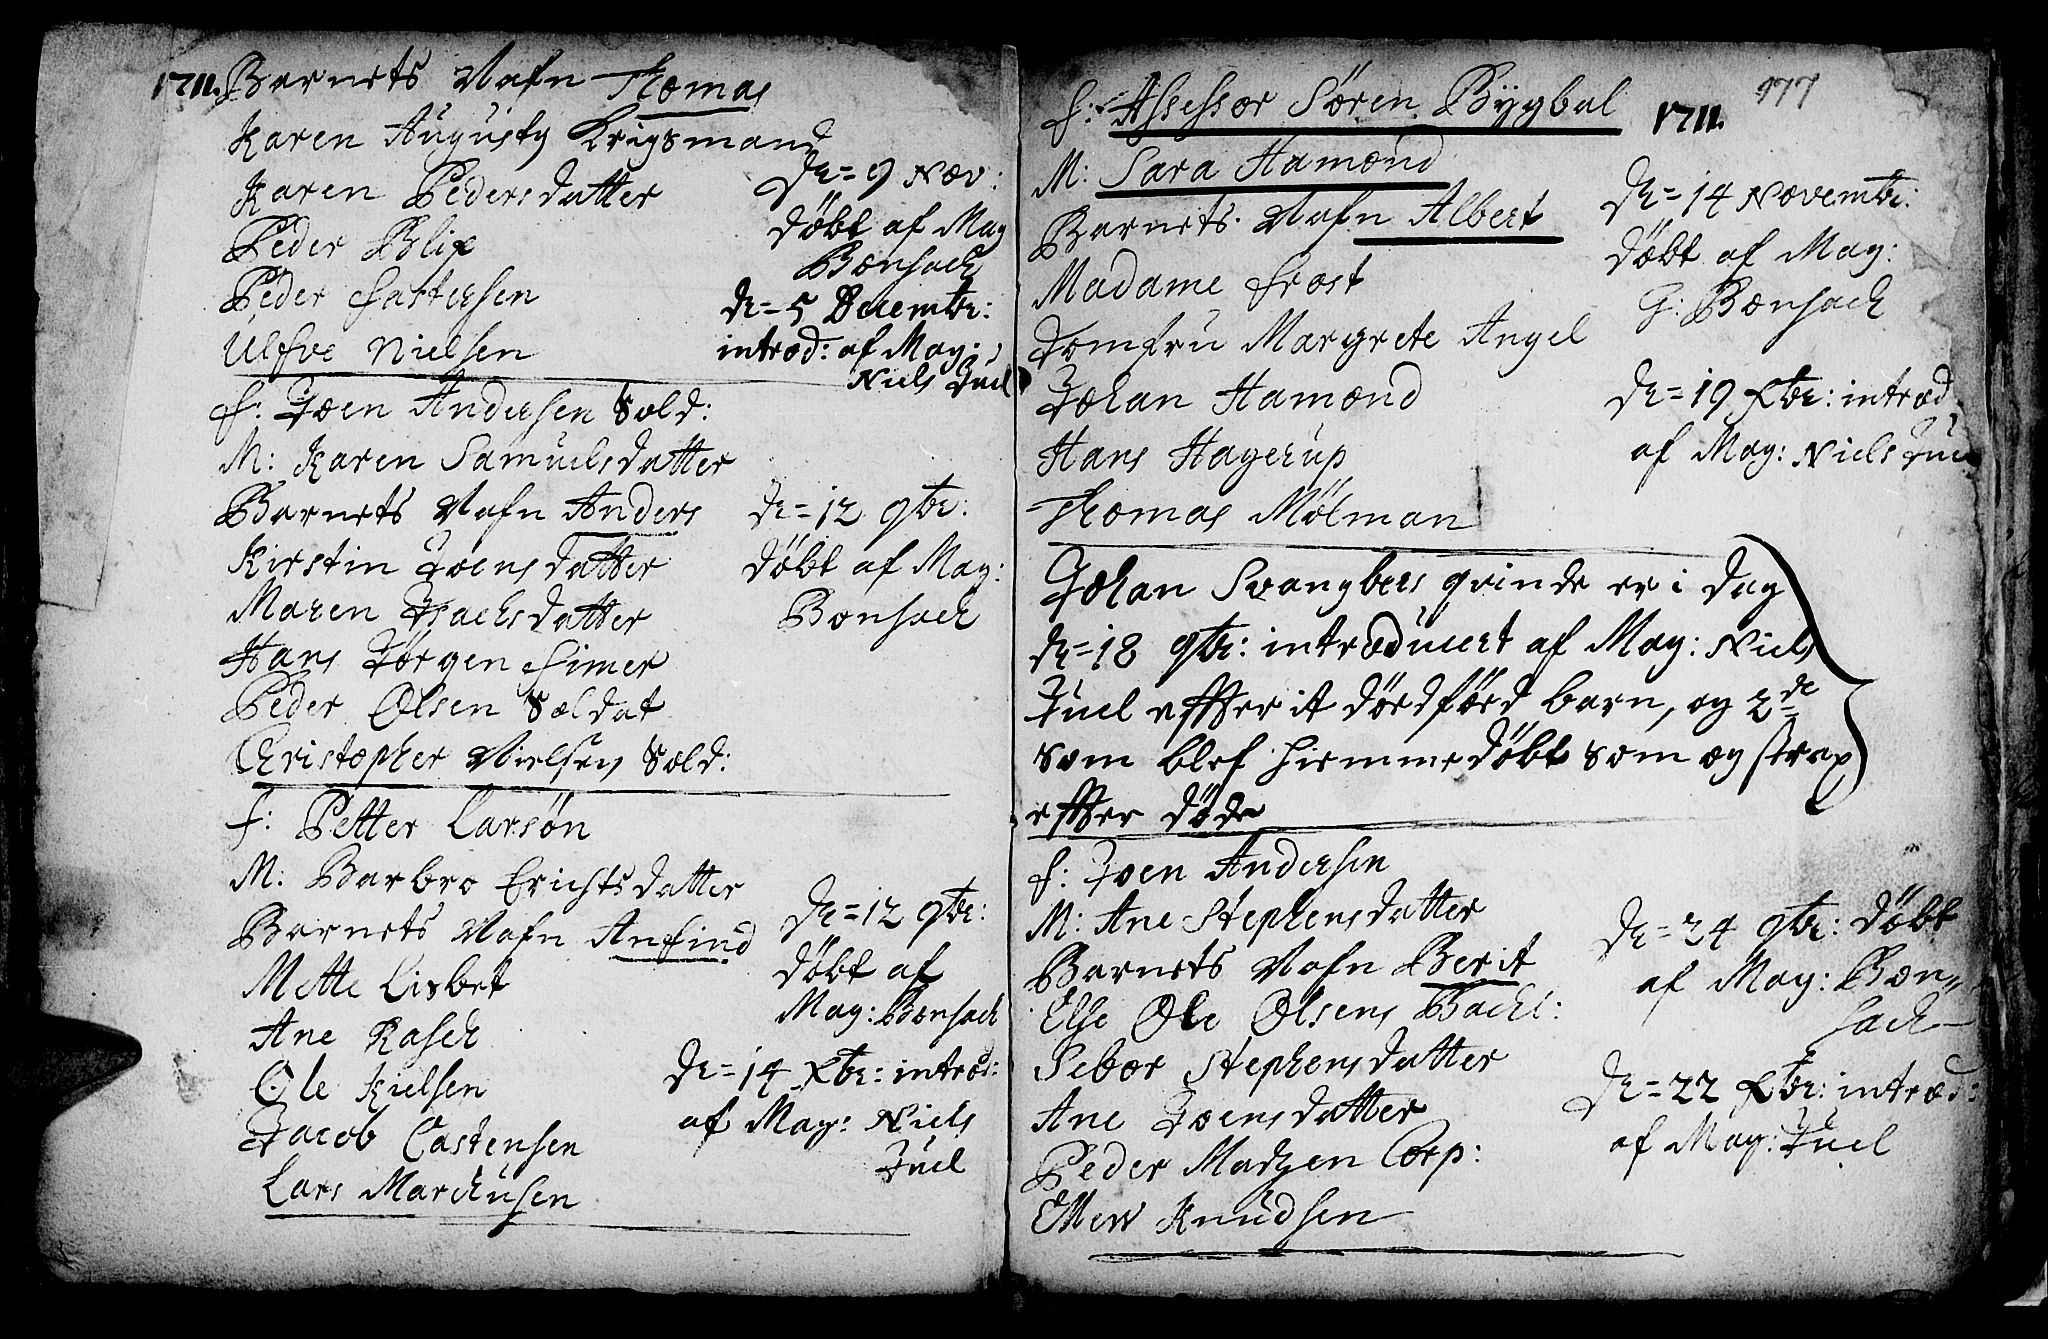 1711. Barnets Nafn Thomas
Karen Augusty Krigsmand
Karen Pedersdatter
Peder Blix
Peder Fastersen
Ulfve Nielsen
De=9 Nov:
døbt af Mag
Bonsach
De=5 Decembr:
introd: af Mag:
Niels Juel
F: Joen Andersen Sold:
M: Karen Samuelsdatter
Barnets Nafn Anders
Kirstin Joensdatter
Maren Isachsdatter
Hans Jørgen Fimer
Peder Olsen Soldat
Christopher Nielsen Sold:
De=12 9br:
døbt af Mag:
Bonsach
F: Petter Larsøn
M: Barbro Erichsdatter
Barnets Nafn Anfind
Mette Lisbet
Ane Rasch
Ole Kielsen
Jacob Castensen
Lars Marchusen
De=12 9br:
døbt af
Mag: Bonsach
De=14 Xbr: introd:
af Mag: Niels
Juel
977
F: Assessor Søren Bygbal 1711.
M: Sara Hamond
Barnets Nafn Albert
Madame Frost
Jomfru Margrete Angel
Johan Hamond
Hans Hagerup
Thomas Mølman
De=14 Novembr:
døbt af Mag:
G: Bonsach
De=19 Xbr: introd
af Mag: Niels Juel
Johan Svangbers qvinde er i dag
De=18 9br: introducert af Mag: Niels
Juel effter it dødfød barn, og 2de
som blef hiemmedøbt som og strax
effter døde
F: Joen Andersen
M: Ane Stephensdatter
Barnets Nafn Berit
Else Ole Olsens Bachl:
Sebor Stephensdatter
Ane Joensdatter
Peder Madzen Corp:
Ellew Knudsen
De=24 9br: døbt
af Mag: Bon=
sach
De=22 Xbr: introd:
af Mag: Juel